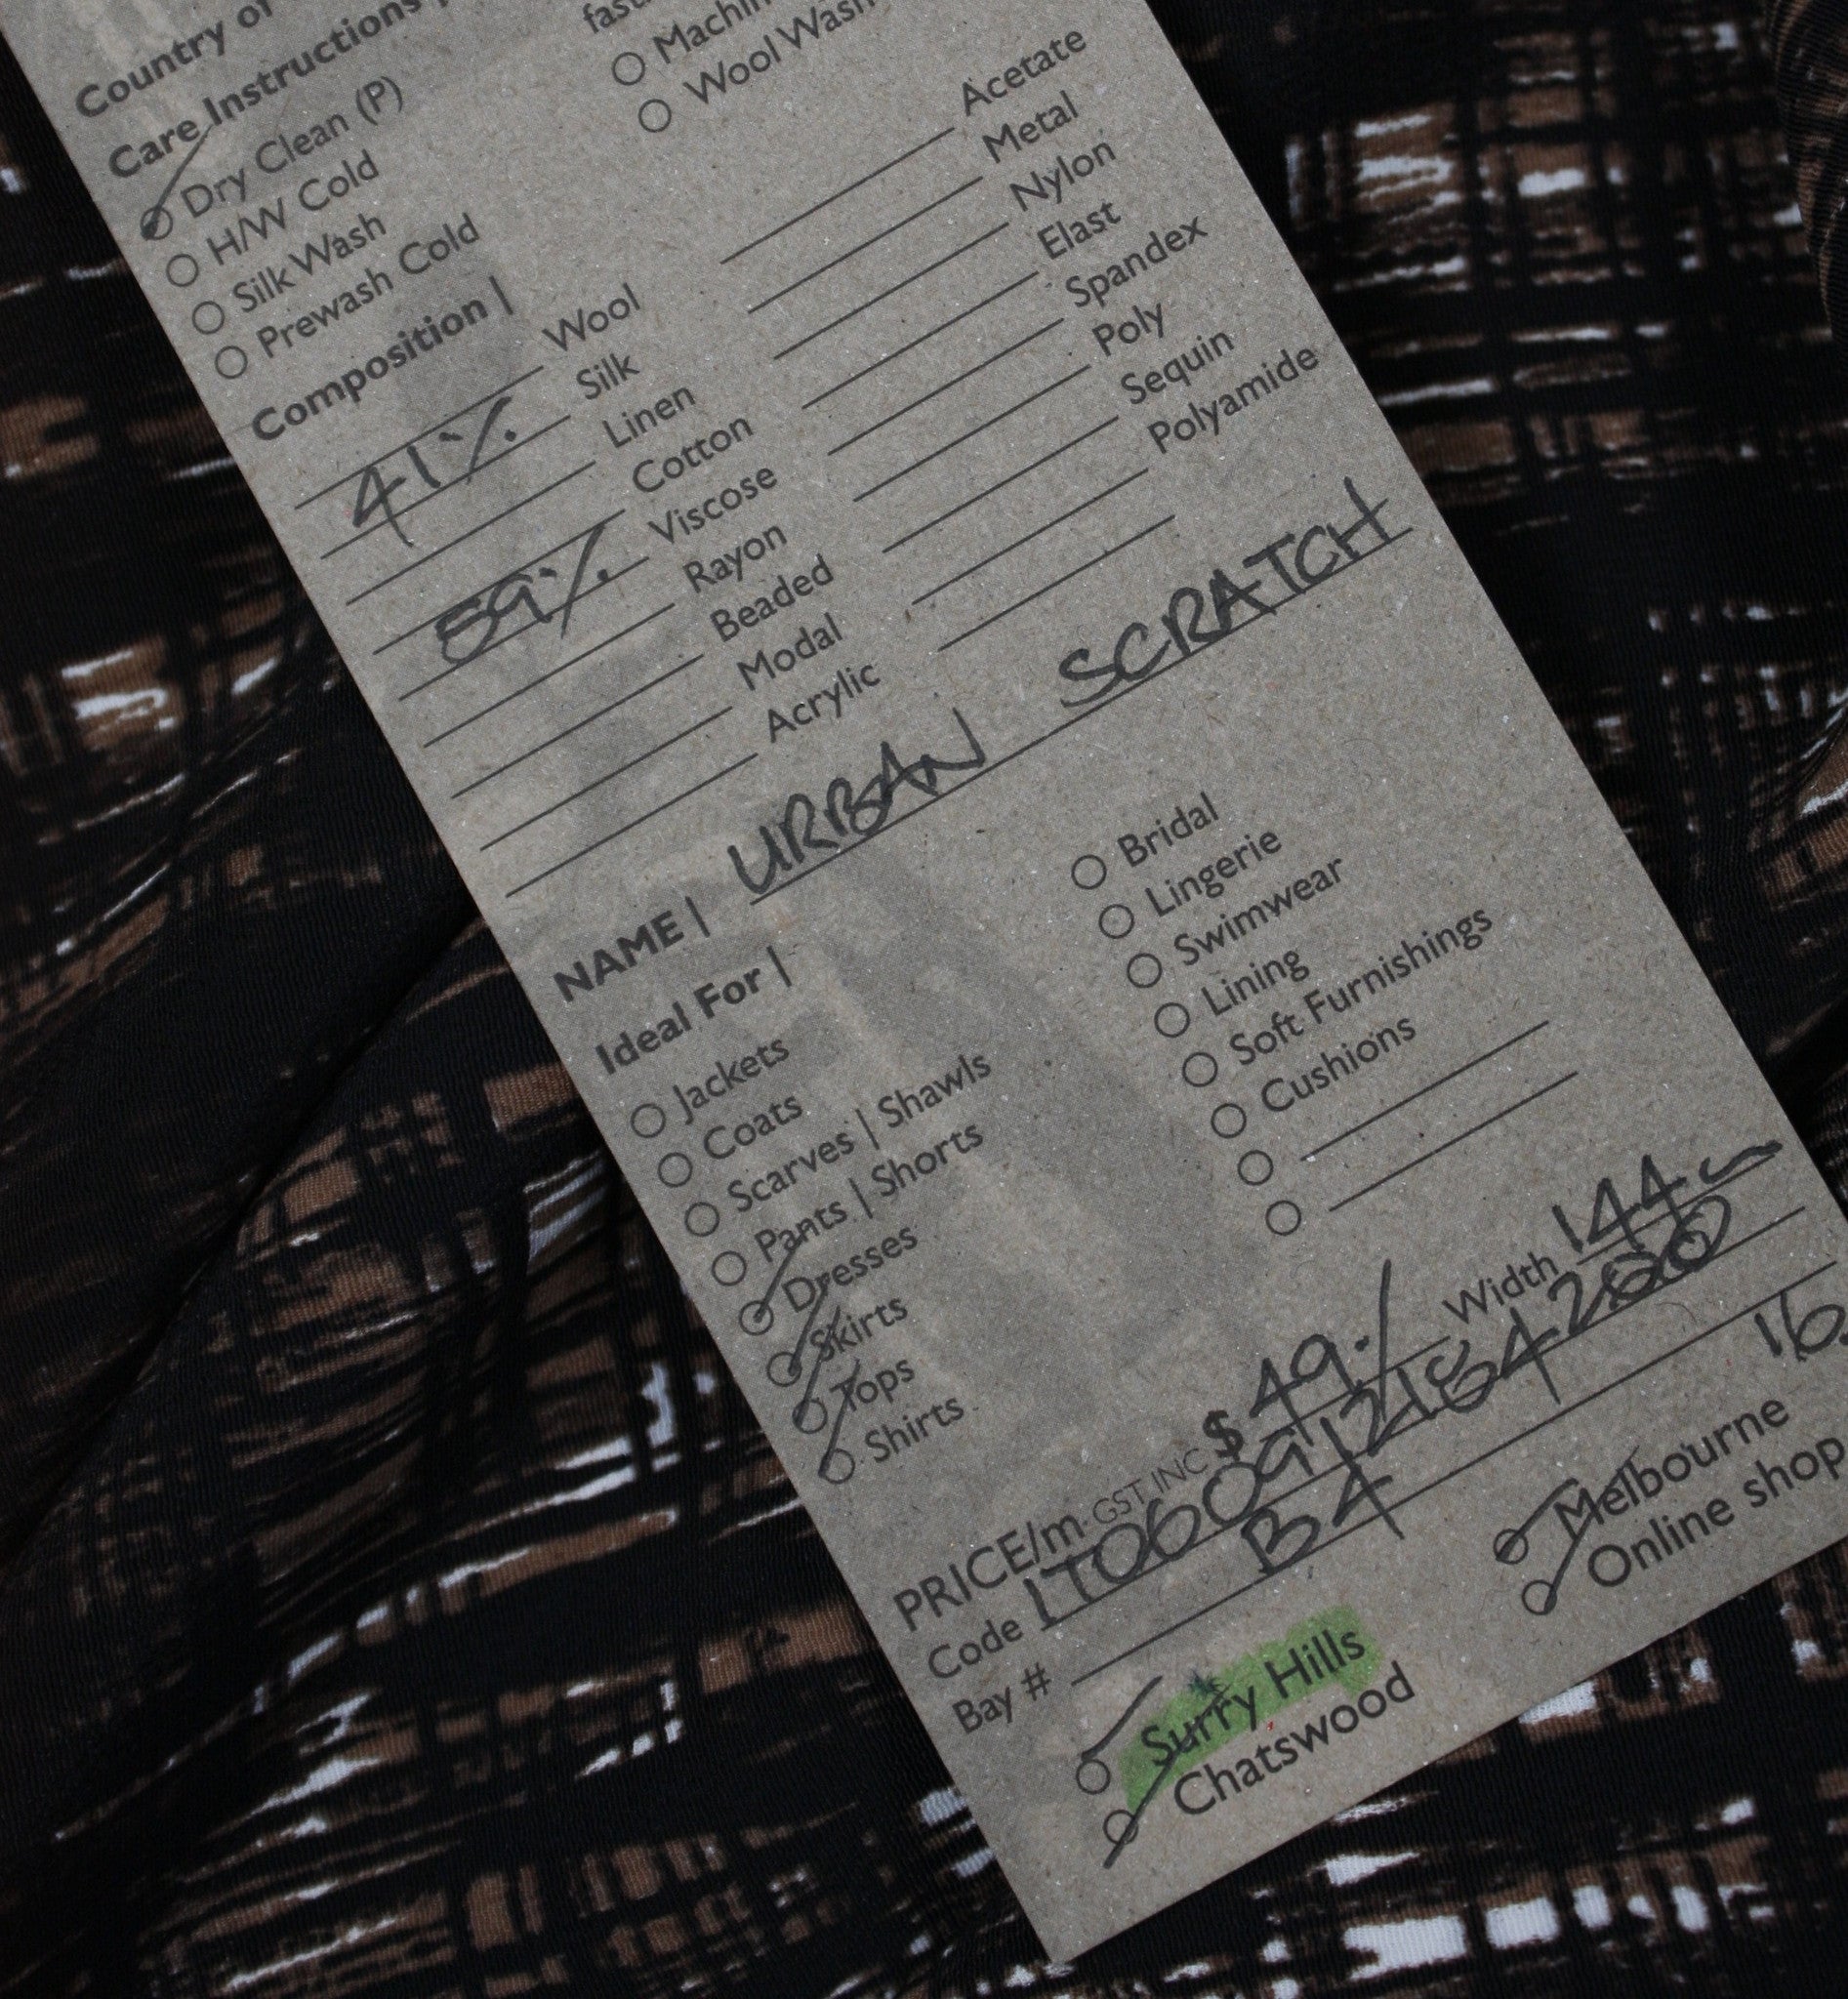 Country of
Care Instructions |
Dry Clean (P)
H/W Cold
Silk Wash
Prewash Cold
Wool Wash
Composition |
Wool
41% Silk
Linen
Cotton
59% Viscose
Rayon
Beaded
Modal
Acrylic
Acetate
Metal
Nylon
Elast
Spandex
Poly
Sequin
Polyamide
NAME | URBAN SCRATCH
Ideal For |
Jackets
Coats
Scarves | Shawls
Pants | Shorts
Dresses
Skirts
Tops
Shirts
Bridal
Lingerie
Swimwear
Lining
Soft Furnishings
Cushions
PRICE/m GST INC $49. Width 144
Code
Bay # B4 16
Surry Hills
Chatswood
Melbourne
Online shop